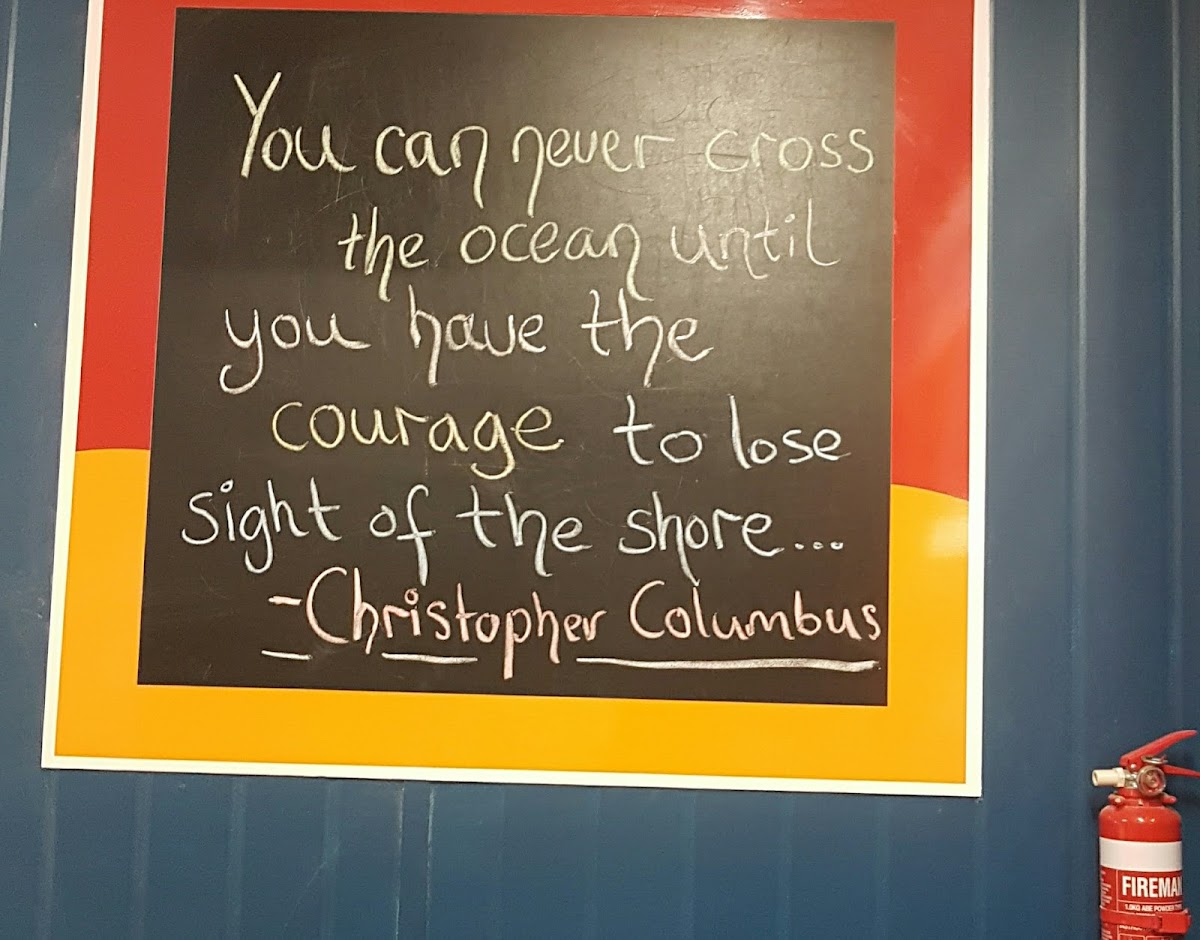 You can never cross
the ocean until
you have the
courage to lose
sight of the shore...
-Christopher Columbus
FIREMAN
1.0KG ABE POWDER